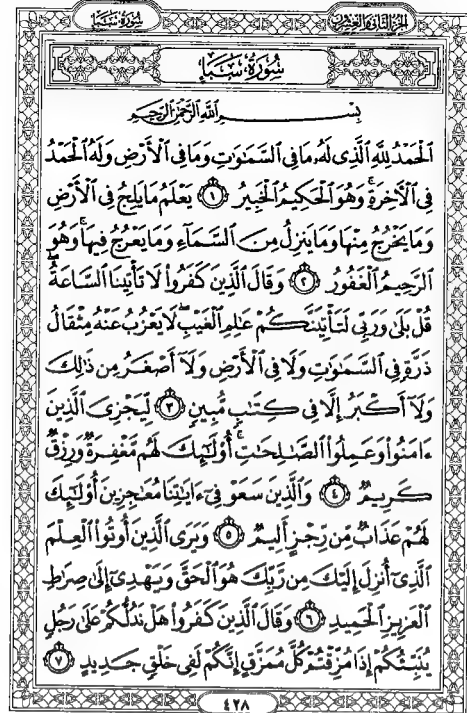 الجزء الثاني والعشرون سورة سبإ
سورة سبإ
بسم الله الرحمن الرحيم
ٱلْحَمْدُ لِلَّهِ ٱلَّذِى لَهُۥ مَا فِى ٱلسَّمَٰوَٰتِ وَمَا فِى ٱلْأَرْضِ وَلَهُ ٱلْحَمْدُ
فِى ٱلْءَاخِرَةِ ۚ وَهُوَ ٱلْحَكِيمُ ٱلْخَبِيرُ ١ يَعْلَمُ مَا يَلِجُ فِى ٱلْأَرْضِ
وَمَا يَخْرُجُ مِنْهَا وَمَا يَنزِلُ مِنَ ٱلسَّمَآءِ وَمَا يَعْرُجُ فِيهَا ۚ وَهُوَ
ٱلرَّحِيمُ ٱلْغَفُورُ ٢ وَقَالَ ٱلَّذِينَ كَفَرُوا۟ لَا تَأْتِينَا ٱلسَّاعَةُ ۖ
قُلْ بَلَىٰ وَرَبِّى لَتَأْتِيَنَّكُمْ عَٰلِمِ ٱلْغَيْبِ ۖ لَا يَعْزُبُ عَنْهُ مِثْقَالُ
ذَرَّةٍ فِى ٱلسَّمَٰوَٰتِ وَلَا فِى ٱلْأَرْضِ وَلَآ أَصْغَرُ مِن ذَٰلِكَ
وَلَآ أَكْبَرُ إِلَّا فِى كِتَٰبٍ مُّبِينٍ ٣ لِّيَجْزِىَ ٱلَّذِينَ
ءَامَنُوا۟ وَعَمِلُوا۟ ٱلصَّٰلِحَٰتِ ۚ أُو۟لَٰٓئِكَ لَهُم مَّغْفِرَةٌ وَرِزْقٌ
كَرِيمٌ ٤ وَٱلَّذِينَ سَعَوْ فِىٓ ءَايَٰتِنَا مُعَٰجِزِينَ أُو۟لَٰٓئِكَ
لَهُمْ عَذَابٌ مِّن رِّجْزٍ أَلِيمٌ ٥ وَيَرَى ٱلَّذِينَ أُوتُوا۟ ٱلْعِلْمَ
ٱلَّذِىٓ أُنزِلَ إِلَيْكَ مِن رَّبِّكَ هُوَ ٱلْحَقَّ وَيَهْدِىٓ إِلَىٰ صِرَٰطِ
ٱلْعَزِيزِ ٱلْحَمِيدِ ٦ وَقَالَ ٱلَّذِينَ كَفَرُوا۟ هَلْ نَدُلُّكُمْ عَلَىٰ رَجُلٍ
يُنَبِّئُكُمْ إِذَا مُزِّقْتُمْ كُلَّ مُمَزَّقٍ إِنَّكُمْ لَفِى خَلْقٍ جَدِيدٍ ٧
٤٢٨